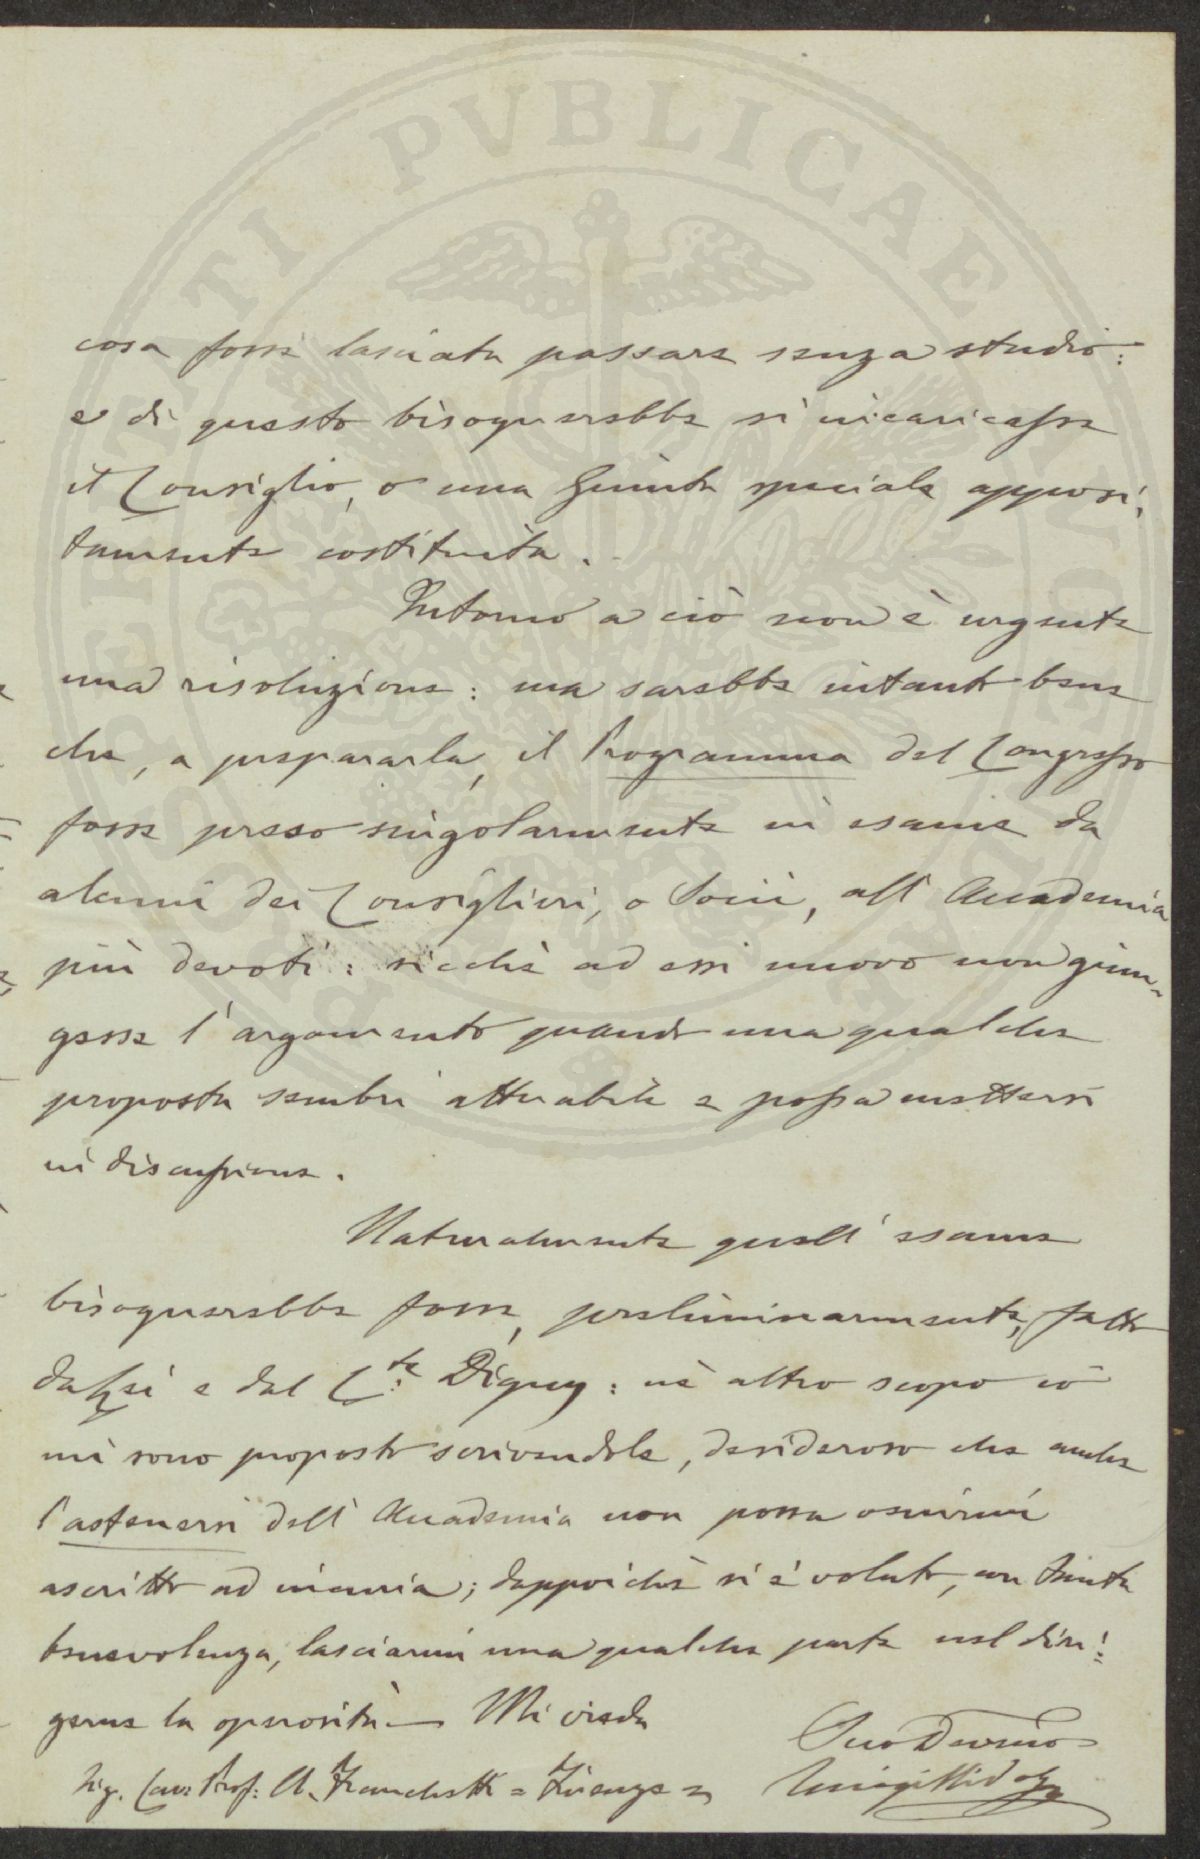 PROSPERITATI PVBLICAE AVGENDAE
cosa fosse lasciata passare senza studio:
e di questo bisognerebbe si incaricasse
il Consiglio, o una Giunta speciale apposi-
tamente costituita.
Intorno a ciò non è urgente
una risoluzione: ma sarebbe intanto bene
che, a prepararla, il Programma del Congresso
fosse preso singolarmente in esame da
alcuni dei Consiglieri, o Socii, all'Accademia
più devoti: sicchè ad essi nuovo non giun-
gesse l'argomento quando una qualche
proposta sembri attuabile e possa mettersi
in discussione.
Naturalmente quell'esame
bisognerebbe fosse, preliminarmente, fatto
da Lei e dal C.te Digny: nè altro scopo io
mi sono proposto scrivendole, desideroso che anche
l'astenersi dell'Accademia non possa essermi
ascritto ad incuria; dappoichè si è voluto, con tanta
benevolenza, lasciarmi una qualche parte nel diri-
gerne la operosità — Mi creda
Suo Devmo
Sig. Cav: Prof: A. Franchetti = Firenze =